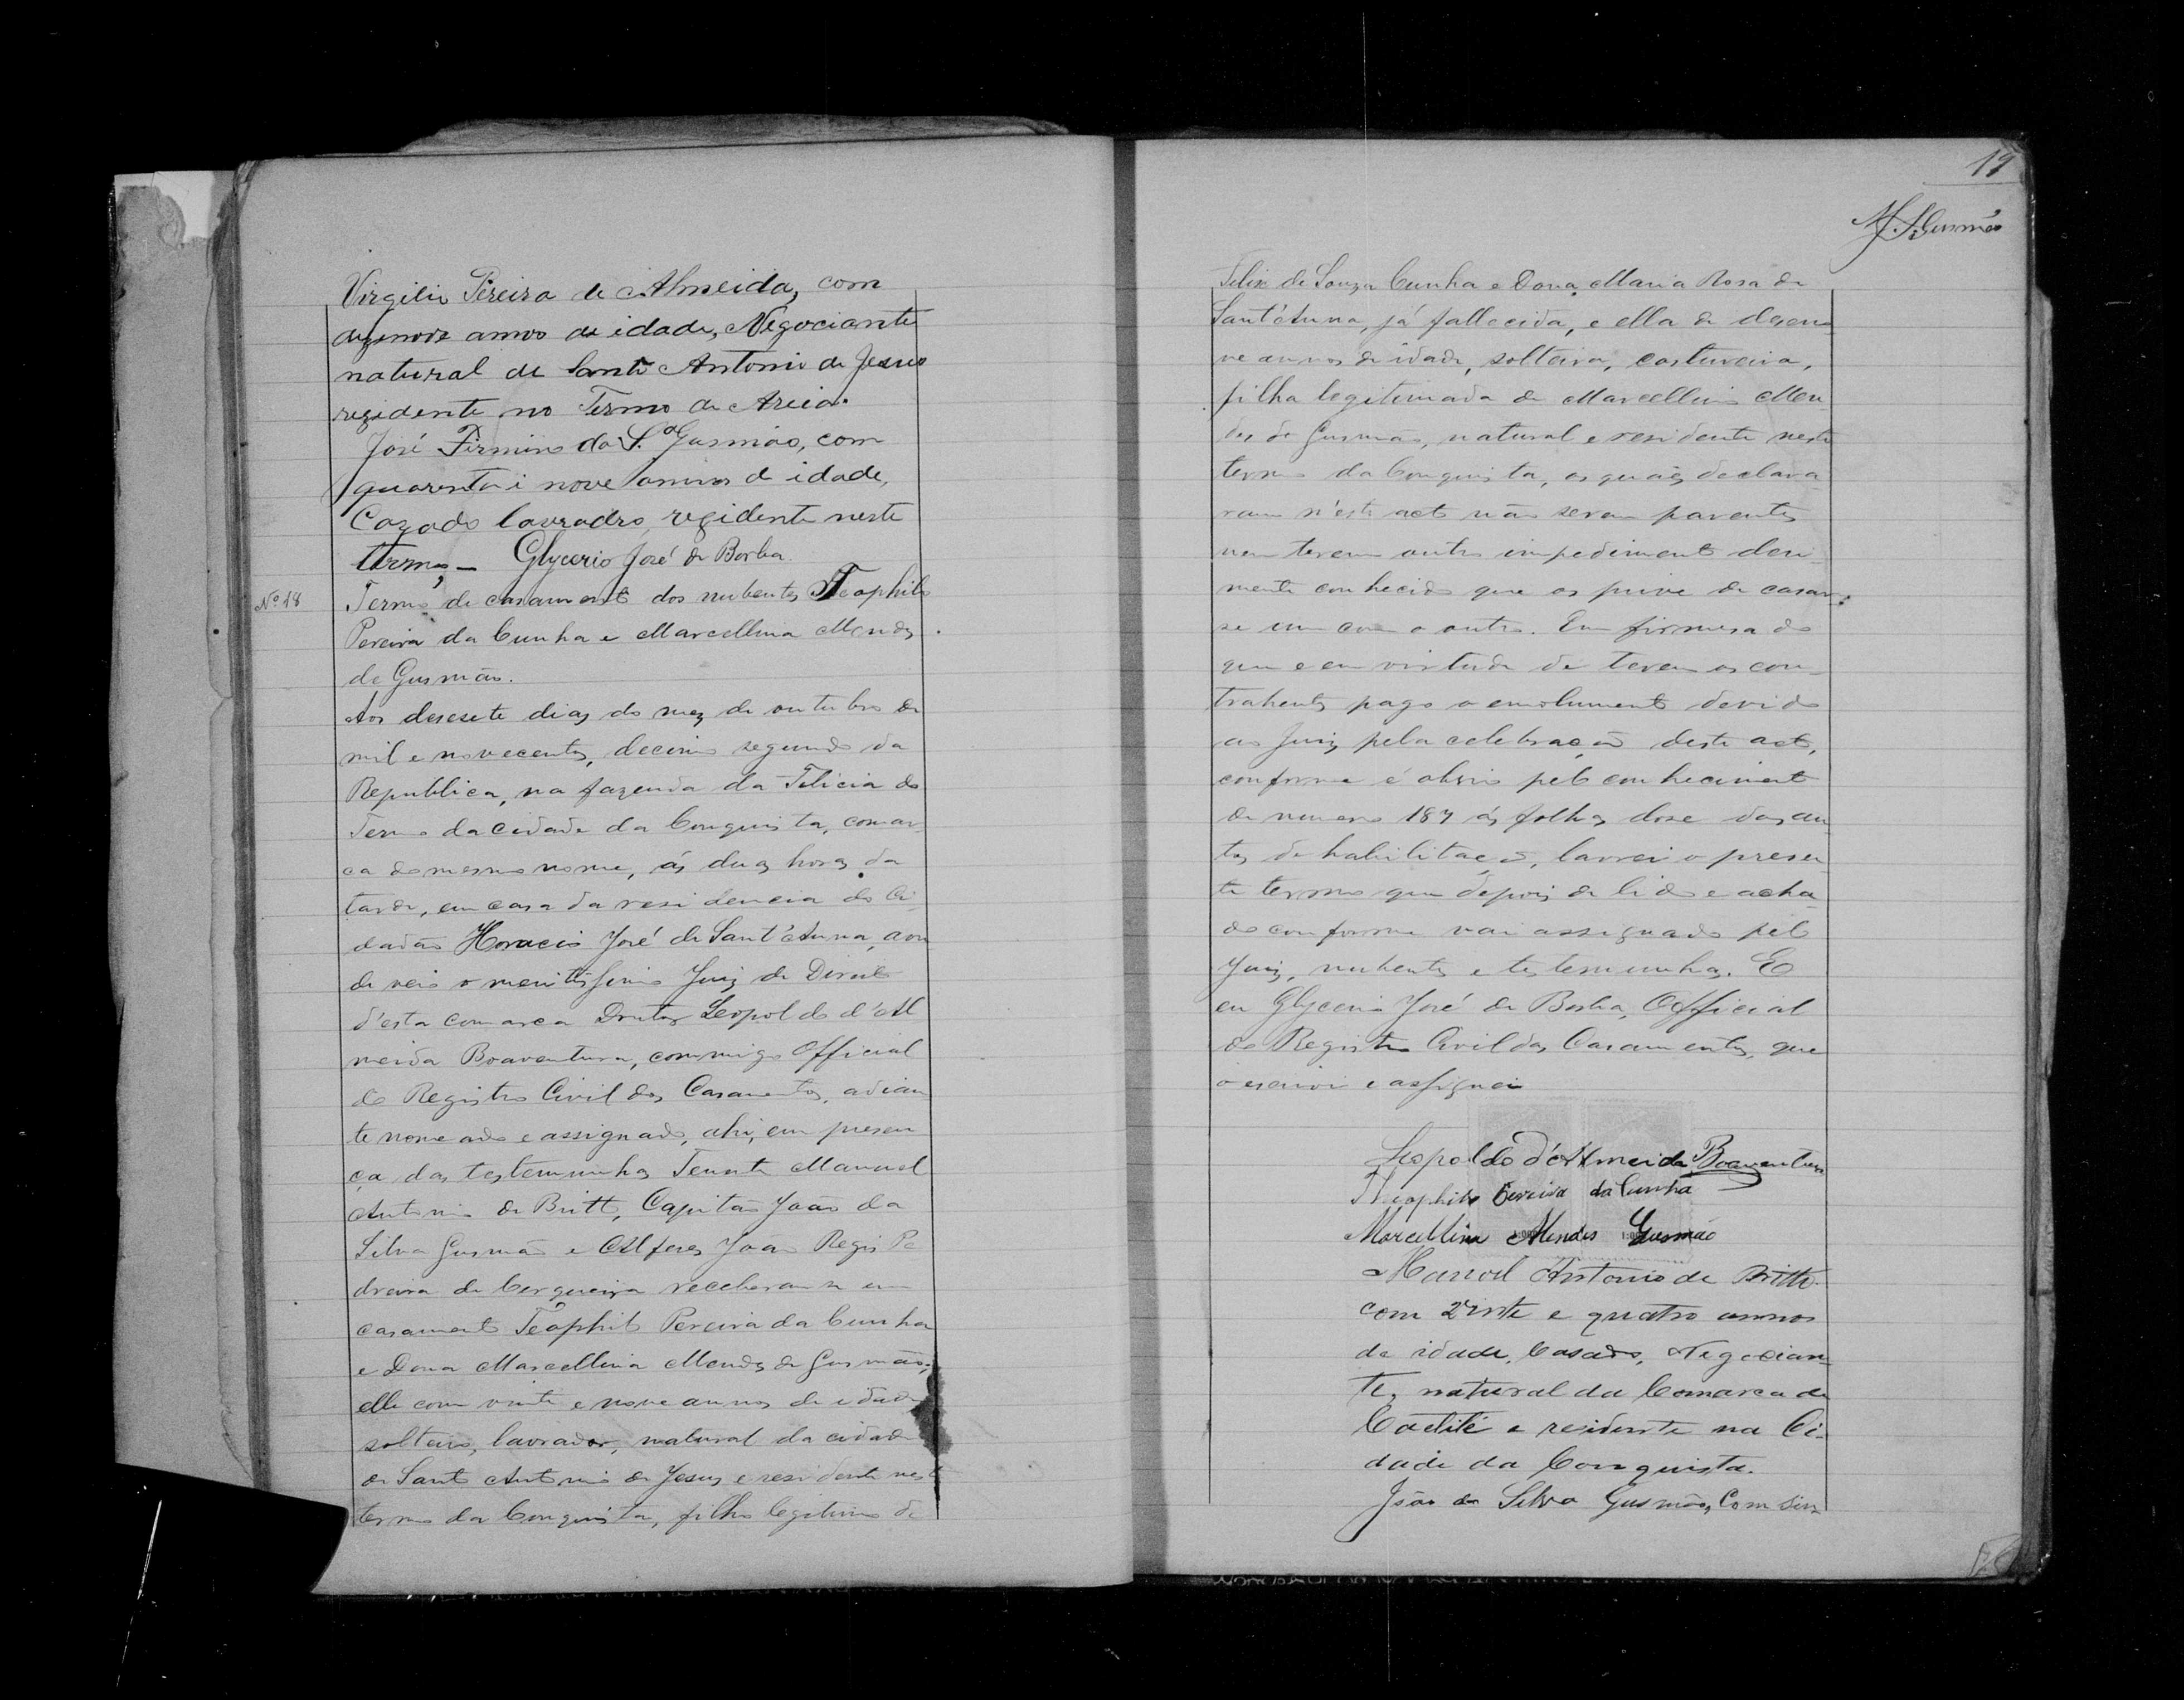 Virgilio Pereira de Almeida, com
desenove annos de idade, Negociante
natural de Santo Antonio de Jesus
rezidente no Termo de Areia.
José Firmino da S.ª Gusmão, com
quarenta i nove annos d idade,
Cazado lavrador rezidente neste
termo, — Glycerio José de Borba
Nº 18
Termo de casamento dos nubentes Teophilo
Pereira da Cunha e Marcellina Mendes
de Gusmão.
Aos desesete dias do mez de outubro de
mil e novecentos, decimo segundo da
Republica, na fazenda da Felicia do
Termo da cidade da Conquista, comar
ca do mesmo nome, ás duas horas da
tarde, em casa da residencia do Ci-
dadão Horacio José de Sant'Anna, aon
de veio o meritissimo Juiz de Direito
d'esta comarca Doutor Leopoldo d'Al
meida Boaventura, commigo Official
do Registro Civil dos Casamentos, adian
te nomeado e assignado, ahi, em presen
ça das testemunhas Tenente Manoel
Antonio de Britto, Capitão João da
Silva Gusmão e Alferes João Regis Pe
dreira de Cerqueira receberam se em
casamento Teophilo Pereira da Cunha
e Dona Marcellina Mendes de Gusmão,
elle com vinte e nove annos de idade
solteiro, lavrador, natural da cidade
de Santo Antonio de Jesus e residente nest
termo da Conquista, filho legitimo de
19
M. S. Gusmão
Felix de Souza Cunha e Dona Maria Rosa de
Sant'Anna, já fallecida, e ella de deseno
ve annos de idade, solteira, costureira,
filha legitimada de Marcellino Men
des de Gusmão, natural e residente neste
termo da Conquista, os quaes declara
ram n'este acto não serem parentes
nem terem outro impedimento
mente conhecido que os prive de casar
se um com o outro. Em firmesa do
que e em virtude de terem os con
trahentes pago o emolumento devido
ao Juiz pela celebração deste acto,
conforme é pelo conhecimento
de numero 187 ás folhas dose dos au
tos de habilitação, lavrei o presen
te termo que depois de lido e acha
do conforme vai assignado pelo
Juiz, nubentes e testemunhas. E
eu Glycerio José de Borba, Official
do Registro Civil dos Casamentos, que
o escrivi e assignei
Leopoldo d'Almeida Boaventura
Theophilo Pereira da Cunha
Marcellina Mendes Gusmão
Manoel Antonio de Britto
com vinte e quatro annos
de idade, Casado, Negocian
te, natural da Comarca de
Caetité e residente na Ci-
dade da Conquista.
João da Silva Gusmão, Com sin